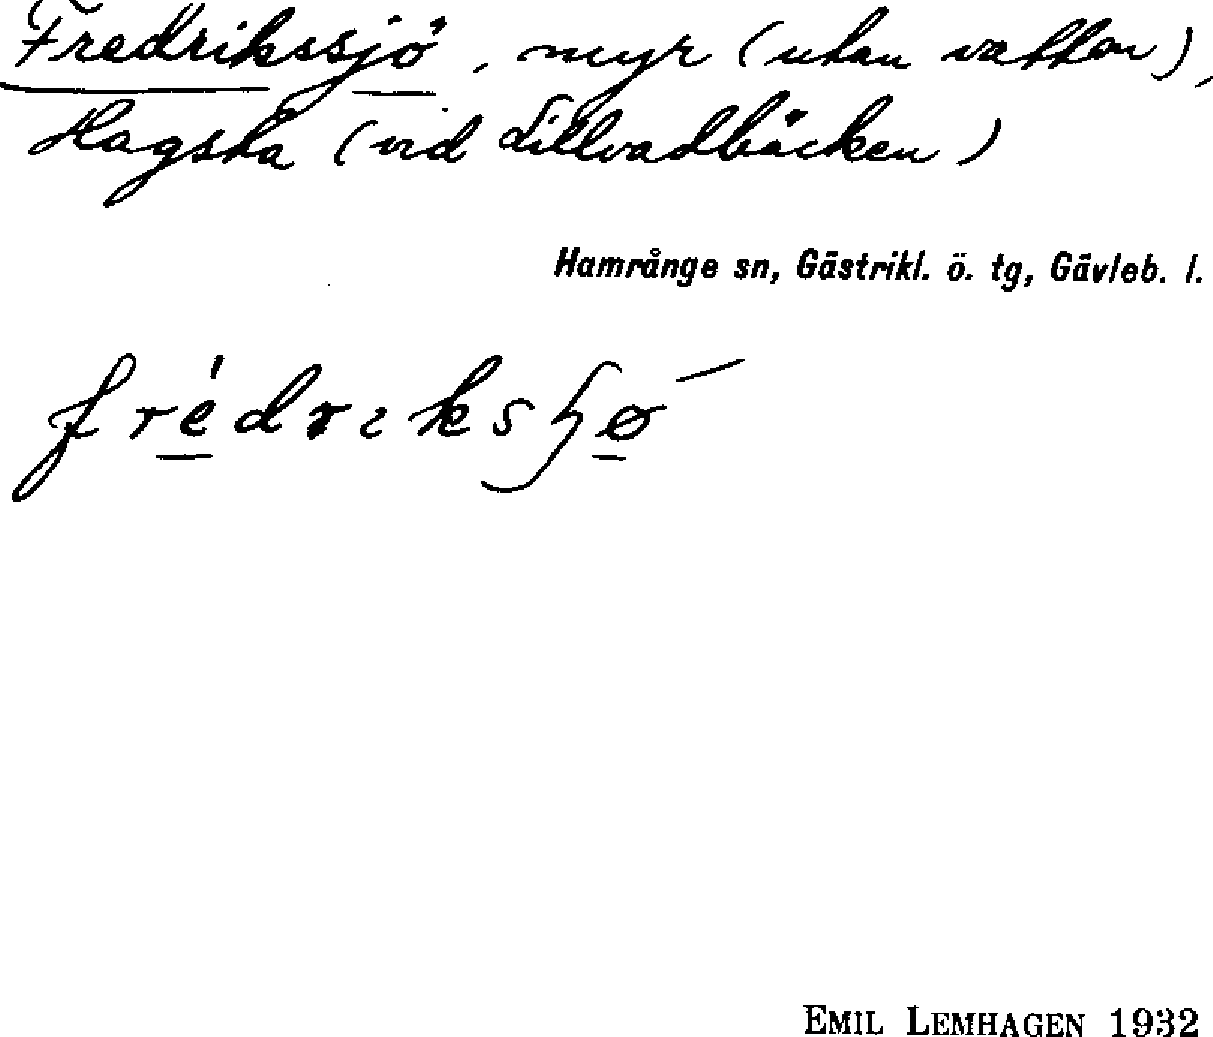 Fredrikssjö, myr (utan vatten),
Hagsta (vid Lillvadbäcken)
Hamrånge sn, Gästrikl. ö. tg, Gävleb. l.
EMIL LEMHAGEN 1932